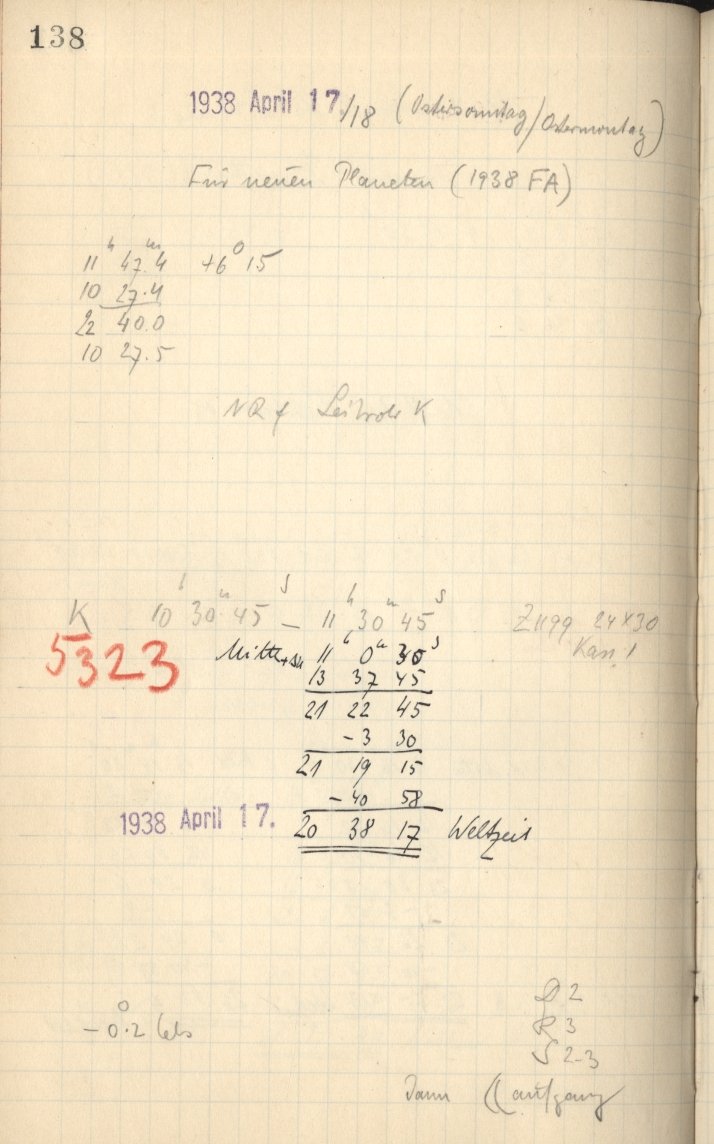 138
1938 April 17./18 (Ostersonntag/Ostermontag)
Für neuen Planeten (1938 FA)
11h 47.4m +6° 15
10 27.4
22 40.0
10 27.5
NR f Leitrohr K
K 10h 30m 45s – 11h 30m 45s Z1199 24x30
5323 11h 0m 30s Kass. 1
13 37 45
21 22 45
-3 30
21 19 15
-40 58
1938 April 17. 20 38 17 Weltzeit
-0°.2 Cels
D 2
R 3
S 2-3
Dann ☾aufgang